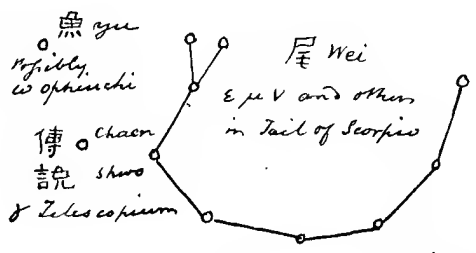 魚 yu
Possibly
ω ophiuchi
傳 Chaen
說 Shwo
γ Telescopium
尾 Wei
ε μ ν and others
in Tail of Scorpio